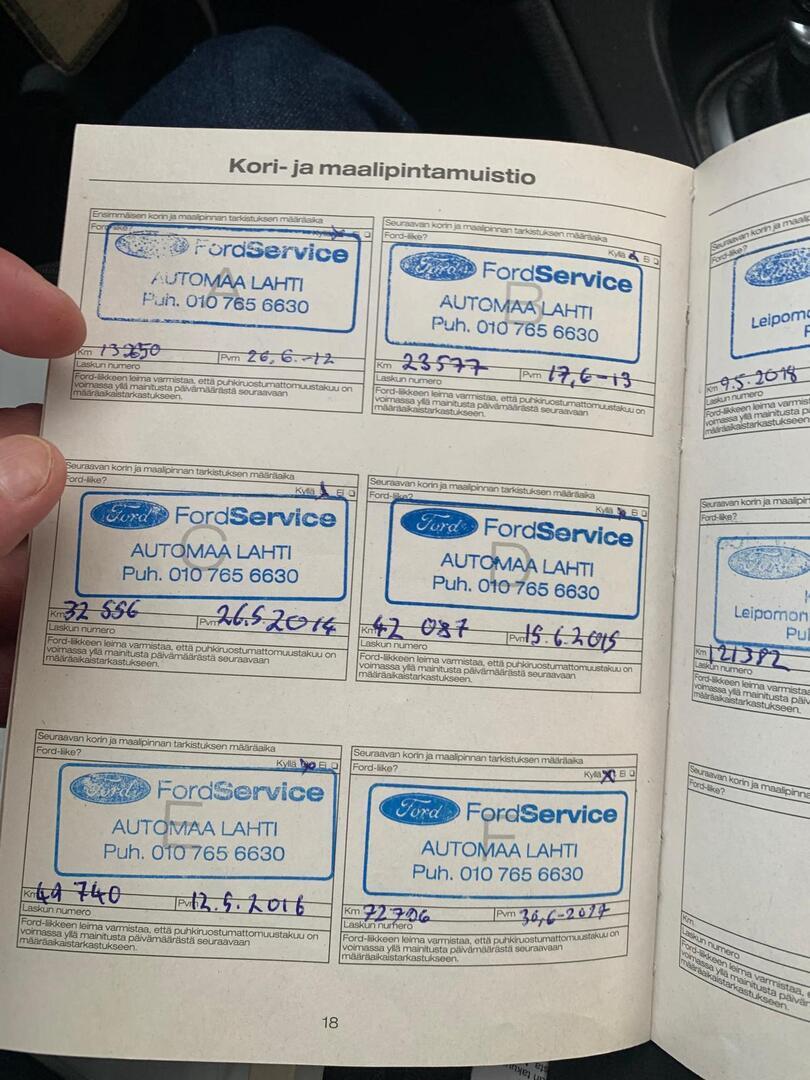 Kori- ja maalipintamuistio
Ensimmäisen korin ja maalipinnan tarkistuksen määräaika
Ford-liike?
Ford FordService
AUTOMAA LAHTI
Puh. 010 765 6630
A
Km 13250 Pvm 26,6.-12
Laskun numero
Ford-liikkeen leima varmistaa, että puhkiruostumattomuustakuu on
voimassa yllä mainitusta päivämäärästä seuraavaan
määräaikaistarkastukseen.
Seuraavan korin ja maalipinnan tarkistuksen määräaika
Ford-liike?
Kyllä Ei
Ford FordService
AUTOMAA LAHTI
Puh. 010 765 6630
B
Km 23577 Pvm 17,6-13
Laskun numero
Ford-liikkeen leima varmistaa, että puhkiruostumattomuustakuu on
voimassa yllä mainitusta päivämäärästä seuraavaan
määräaikaistarkastukseen.
Seuraavan korin ja maalipinnan tarkistuksen määräaika
Ford-liike?
Kyllä Ei
Ford FordService
AUTOMAA LAHTI
Puh. 010 765 6630
C
Km 32 556 Pvm 26.5.2014
Laskun numero
Ford-liikkeen leima varmistaa, että puhkiruostumattomuustakuu on
voimassa yllä mainitusta päivämäärästä seuraavaan
määräaikaistarkastukseen.
Seuraavan korin ja maalipinnan tarkistuksen määräaika
Ford-liike?
Kyllä Ei
Ford FordService
AUTOMAA LAHTI
Puh. 010 765 6630
D
Km 42 087 Pvm 15.6.2015
Laskun numero
Ford-liikkeen leima varmistaa, että puhkiruostumattomuustakuu on
voimassa yllä mainitusta päivämäärästä seuraavaan
määräaikaistarkastukseen.
Seuraavan korin ja maalipinnan tarkistuksen määräaika
Ford-liike?
Kyllä Ei
Ford FordService
AUTOMAA LAHTI
Puh. 010 765 6630
E
Km 49 740 Pvm 12.5.2016
Laskun numero
Ford-liikkeen leima varmistaa, että puhkiruostumattomuustakuu on
voimassa yllä mainitusta päivämäärästä seuraavaan
määräaikaistarkastukseen.
Seuraavan korin ja maalipinnan tarkistuksen määräaika
Ford-liike?
Kyllä Ei
Ford FordService
AUTOMAA LAHTI
Puh. 010 765 6630
F
Km 72706 Pvm 30,6-2017
Laskun numero
Ford-liikkeen leima varmistaa, että puhkiruostumattomuustakuu on
voimassa yllä mainitusta päivämäärästä seuraavaan
määräaikaistarkastukseen.
18
Seuraavan korin ja maalipinnan
Ford-liike?
Km 9.5.2018
Laskun numero
Ford-liikkeen leima
voimassa yllä mainitusta
määräaikaistarkastukseen.
Seuraavan korin ja maalipinnan
Ford-liike?
Km 121382
Laskun numero
Ford-liikkeen leima
voimassa yllä mainitusta
määräaikaistarkastukseen.
Seuraavan korin ja maalipinnan
Ford-liike?
Km
Laskun numero
Ford-liikkeen leima
voimassa yllä mainitusta
määräaikaistarkastukseen.